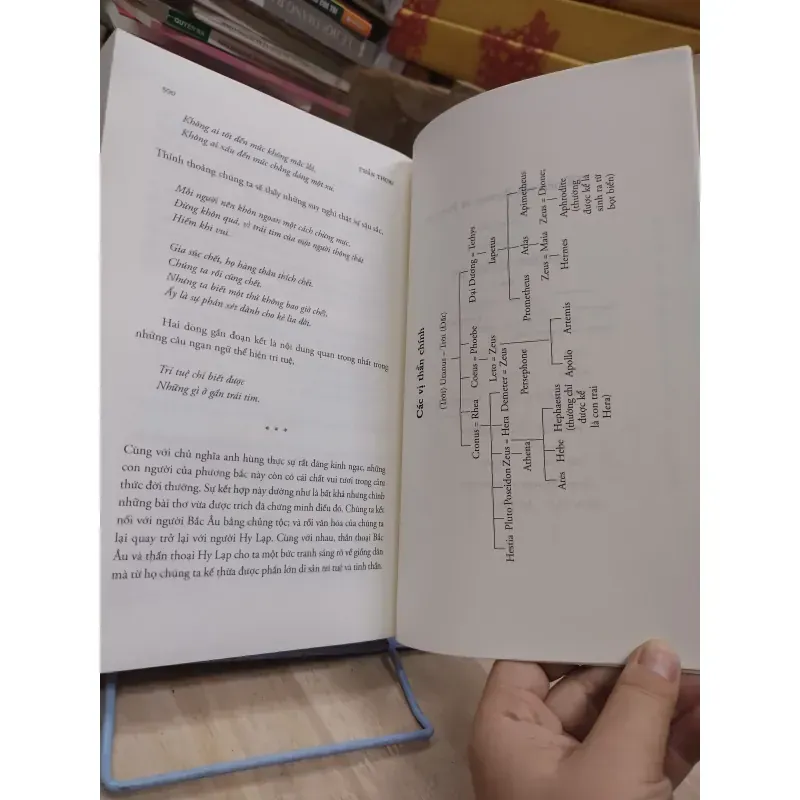 QUYỀN BA
500
THẦN THOẠI
Không ai tốt đến mức không mắc lỗi,
Không ai xấu đến mức chẳng đáng một xu.
Thỉnh thoảng chúng ta sẽ thấy những suy nghĩ thật sự sâu sắc,
Mỗi người nên khôn ngoan một cách chừng mực,
Đừng khôn quá, vì trái tim của một người thông thái
Hiếm khi vui.
Gia súc chết, họ hàng thân thích chết,
Chúng ta rồi cũng chết.
Nhưng ta biết một thứ không bao giờ chết,
Ấy là sự phán xét dành cho kẻ lìa đời.
Hai dòng gần đoạn kết là nội dung quan trọng nhất trong
những câu ngạn ngữ thể hiện trí tuệ,
Trí tuệ chỉ biết được
Những gì ở gần trái tim.
* * *
Cùng với chủ nghĩa anh hùng thực sự rất đáng kinh ngạc, những
con người của phương bắc này còn có cái chất vui tươi trong cảm
thức đời thường. Sự kết hợp này dường như là bất khả nhưng chính
những bài thơ vừa được trích đã chứng minh điều đó. Chúng ta kết
nối với người Bắc Âu bằng chủng tộc; và rồi văn hóa của chúng ta
lại quay trở lại với người Hy Lạp. Cùng với nhau, thần thoại Bắc
Âu và thần thoại Hy Lạp cho ta một bức tranh sáng rõ về giống dân
mà từ họ chúng ta kế thừa được phần lớn di sản trí tuệ và tinh thần.
Các vị thần chính
(Trời) Uranus = Trên (Đất)
Cronus = Rhea
Coeus = Phoebe
Đại Dương = Tethys
Iapetus
Hestia
Pluto
Poseidon
Zeus = Hera
Demeter = Zeus
Leto = Zeus
Prometheus
Atlas
Apimetheus
Athena
Persephone
Zeus = Maia
Zeus = Dione;
Ares
Hebe
Hephaestus
(thường chỉ
được kể
là con trai
Hera)
Apollo
Artemis
Hermes
Aphrodite
(thường
được kể là
sinh ra từ
bọt biển)